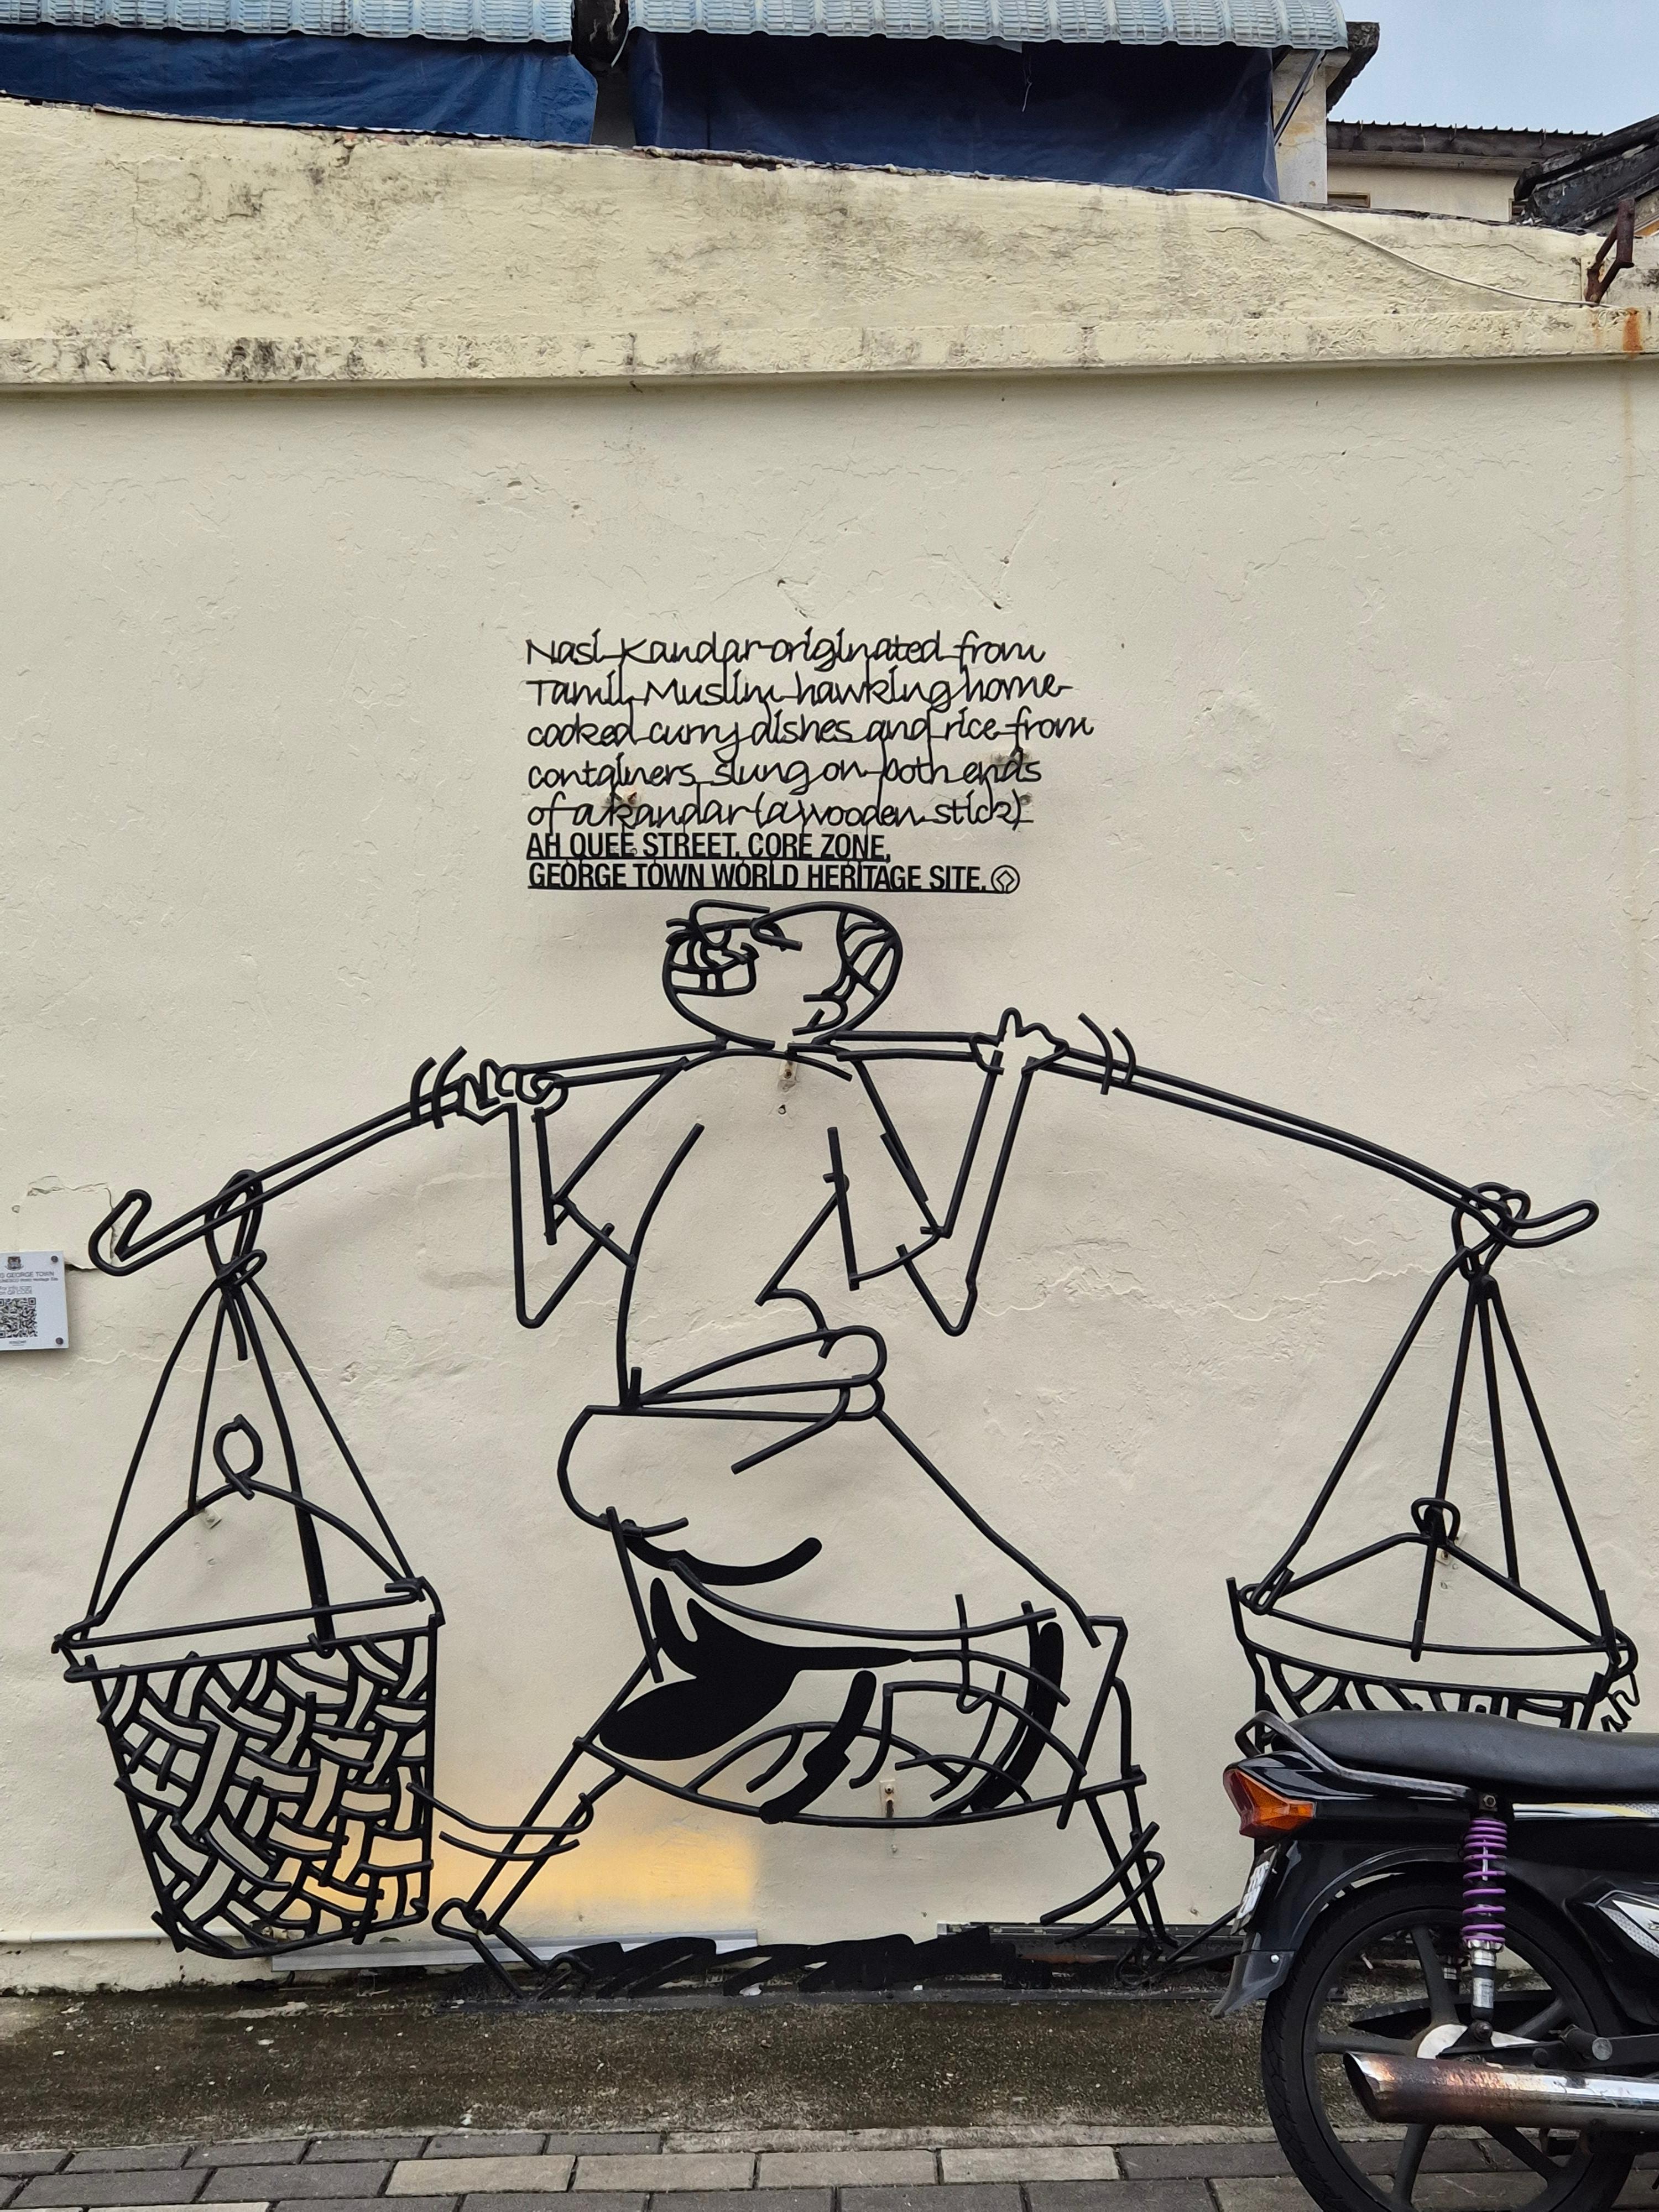 Nasi Kandar originated from
Tamil Muslim hawking home-
cooked curry dishes and rice from
containers slung on both ends
of a kandar (a wooden stick)
AH QUEE STREET, CORE ZONE,
GEORGE TOWN WORLD HERITAGE SITE.
GEORGE TOWN